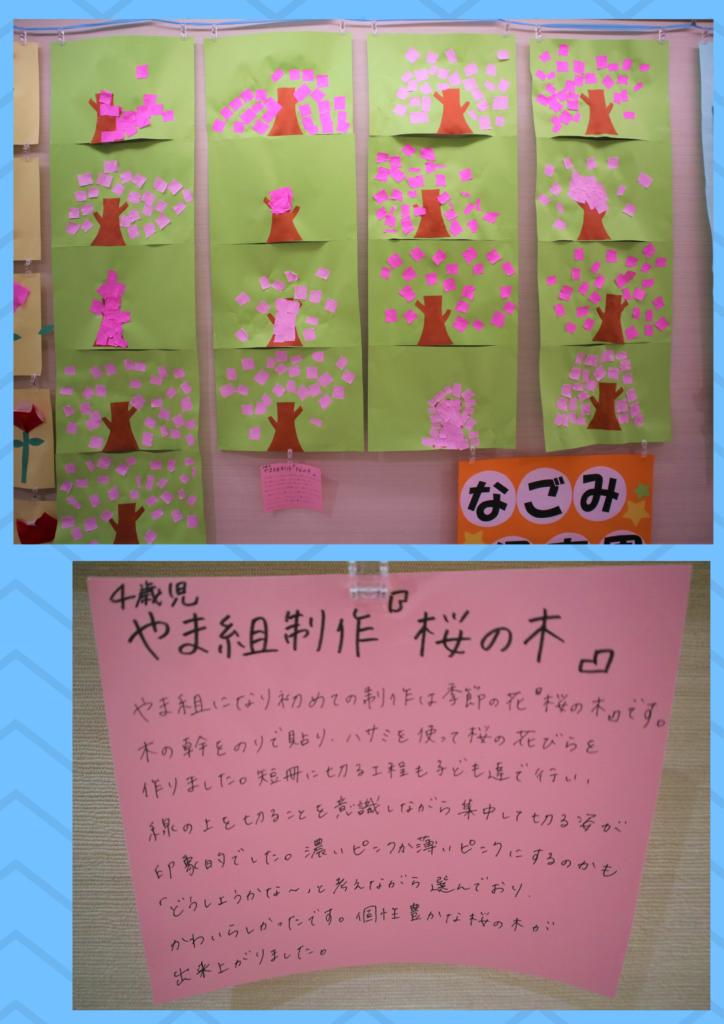 なごみ
4歳児
やま組制作『桜の木』
やま組になり初めての制作は季節の花『桜の木』です。
木の幹をのりで貼り、ハサミを使って桜の花びらを
作りました。短冊に切る工程も子ども達で行い、
線の上を切ることを意識しながら集中して切る姿が
印象的でした。濃いピンクか薄いピンクにするのかも
「どうしようかな〜」と考えながら選んでおり、
かわいらしかったです。個性豊かな桜の木が
出来上がりました。